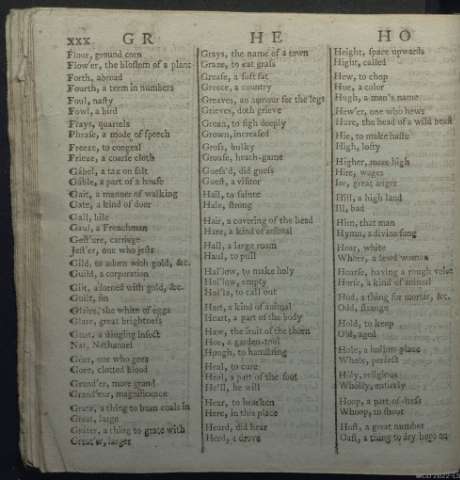 xxx. GR HE HO
Flour, ground corn
Flow'er, the blossom of a plant
Forth, abroad
Fourth, a term in numbers
Foul, nasty
Fowl, a bird
Frays, quarrels
Phrase, a mode of speech
Freeze, to congeal
Frieze, a coarse cloth
Gabel, a tax on salt
Gable, a part of a house
Gait, a manner of walking
Gate, a kind of door
Gall, bile
Gaul, a Frenchman
Gest'ure, carriage
Jest'er, one who jests
Gild, to adorn with gold, &c.
Guild, a corporation
Gilt, adorned with gold, &c.
Guilt, sin
Glaire, the white of eggs
Glare, great brightness
Gnat, a stinging insect
Nat, Nathaniel
Goer, one who goes
Gore, clotted blood
Grand'er, more grand
Grand'eur, magnificence
Grate, a thing to burn coals in
Great, large
Grater, a thing to grate with
Great'er, larger
Grays, the name of a town
Graze, to eat grass
Grease, a soft fat
Greece, a country
Greaves, an armour for the legs
Grieves, doth grieve
Groan, to sigh deeply
Grown, increased
Gross, bulky
Grouse, heath-game
Guess'd, did guess
Guest, a visitor
Hail, to salute
Hale, strong
Hair, a covering of the head
Hare, a kind of animal
Hall, a large room
Haul, to pull
Hal'low, to make holy
Hol'low, empty
Hol'la, to call out
Hart, a kind of animal
Heart, a part of the body
Haw, the fruit of the thorn
Hoe, a garden-tool
Hough, to hamstring
Heal, to cure
Heel, a part of the foot
He'll, he will
Hear, to hearken
Here, in this place
Heard, did hear
Herd, a drove
Height, space upwards
Hight, called
Hew, to chop
Hue, a color
Hugh, a man's name
Hew'er, one who hews
Hure, the head of a wild beast
Hie, to make haste
High, lofty
Higher, more high
Hire, wages
Ire, great anger
Hill, a high land
Ill, bad
Him, that man
Hymn, a divine song
Hoar, white
Whore, a lewd woman
Hoarse, having a rough voice
Horse, a kind of animal
Hod, a thing for mortar, &c.
Odd, strange
Hold, to keep
Old, aged
Hole, a hollow place
Whole, perfect
Holy, religious
Wholly, entirely
Hoop, a part of dress
Whoop, to shout
Host, a great number
Oast, a thing to dry hops on